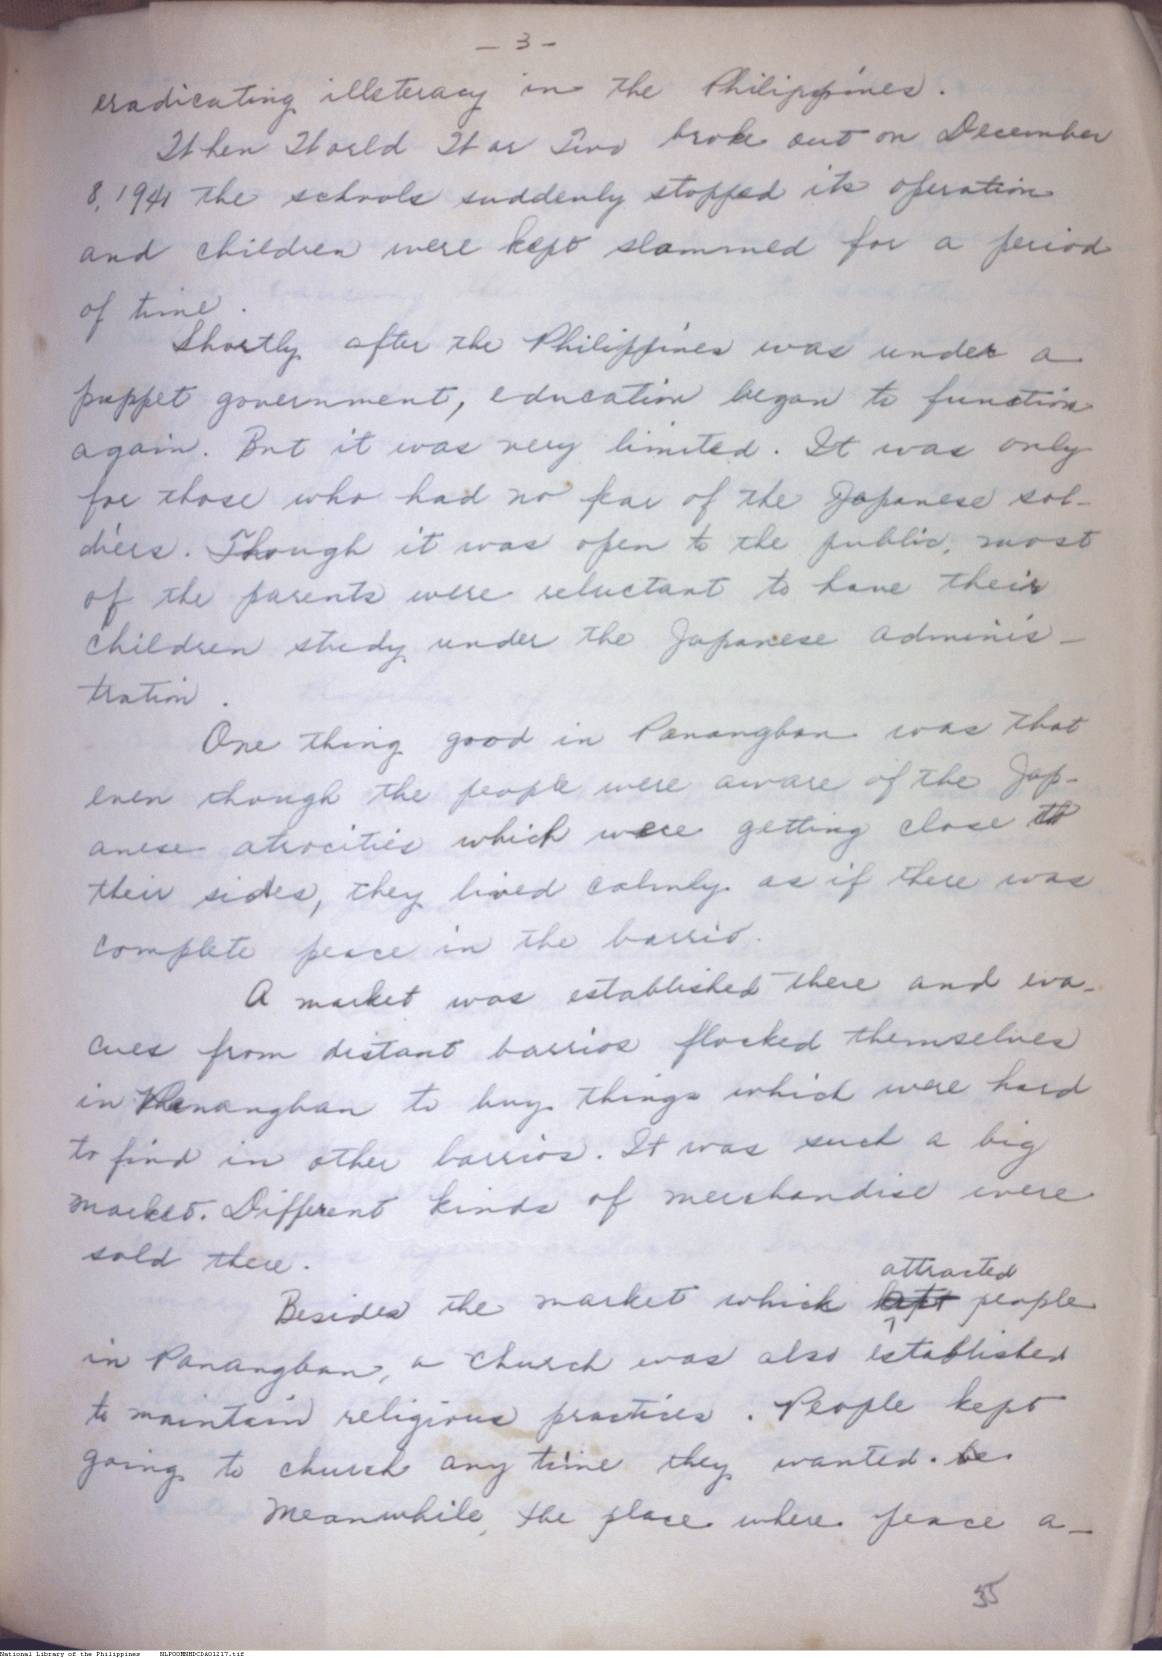 - 3 -
eradicating illeteracy in the Philippines.
When World War Two broke out on December
8, 1941 the schools suddenly stopped its operation
and children were kept slammed for a period
of time.
Shortly after the Philippines was under a
puppet government, education began to function
again. But it was very limited. It was only
for those who had no fear of the Japanese sol-
diers. Though it was open to the public, most
of the parents were reluctant to have their
children study under the Japanese adminis-
tration.
One thing good in Panangban was that
even though the people were aware of the Jap-
anese atrocities which were getting close to
their sides, they lived calmly as if there was
complete peace in the barrio.
A market was established there and eva-
cues from distant barrios flocked themselves
in Panangban to buy things which were hard
to find in other barrios. It was such a big
market. Different kinds of merchandise were
sold there.
attracted
Besides the market which people
in Panangban, a church was also established
to maintain religious practices. People kept
going to church any time they wanted.
Meanwhile, the place where peace a-
35
National Library of the Philippines NLPOOMNHDCDA01217.tif